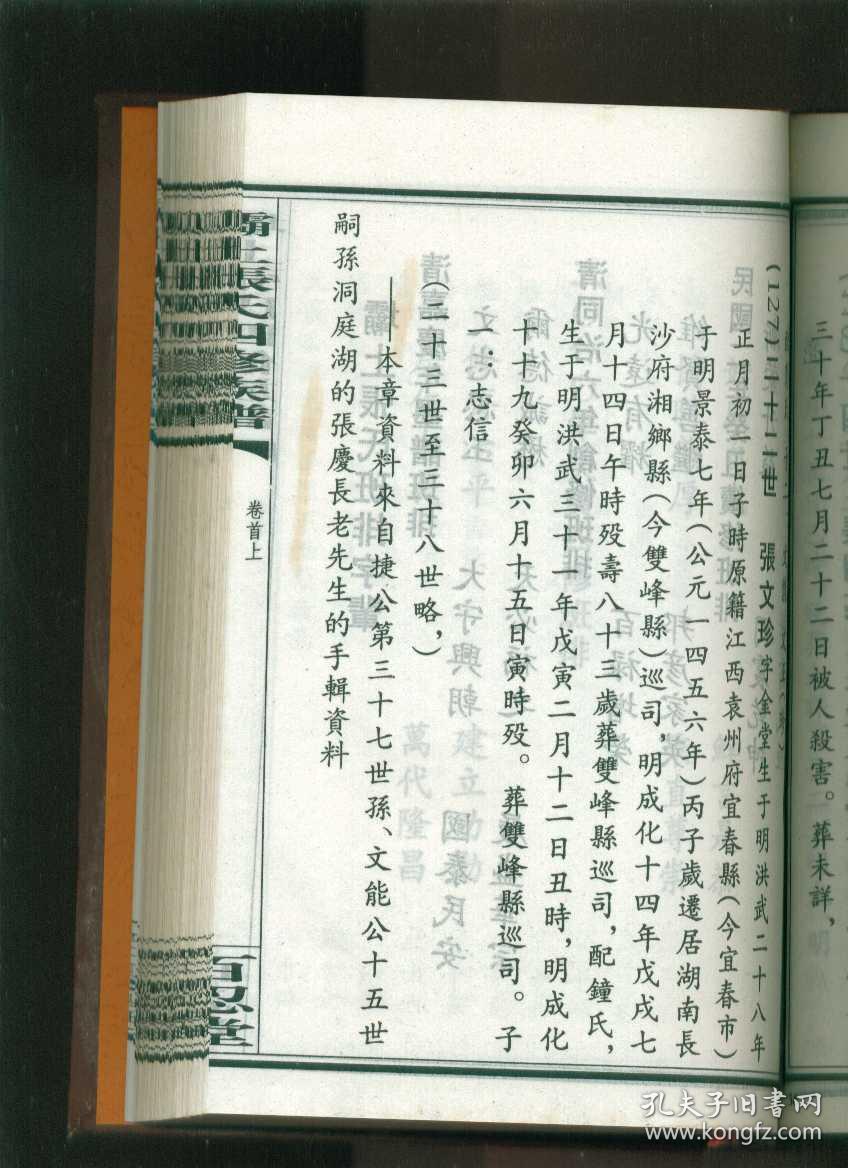 三十年丁丑七月二十二日被人殺害。葬未詳，
(127)二十二世 張文珍字金堂生于明洪武二十八年
正月初一日子時原籍江西袁州府宜春縣(今宜春市)
于明景泰七年(公元一四五六年)丙子歲遷居湖南長
沙府湘鄉縣(今雙峰縣)巡司，明成化十四年戊戌七
月十四日午時殁壽八十三歲葬雙峰縣巡司，配鐘氏，
生于明洪武三十一年戊寅二月十二日丑時，明成化
十九癸卯六月十五日寅時殁。葬雙峰縣巡司。子
一：志信
(二十三世至三十八世略，)
——本章資料來自捷公第三十七世孫、文能公十五世
嗣孫洞庭湖的張慶長老先生的手輯資料
壩上張氏四修族譜
卷首上
百忍堂
孔夫子旧书网
www.kongfz.com